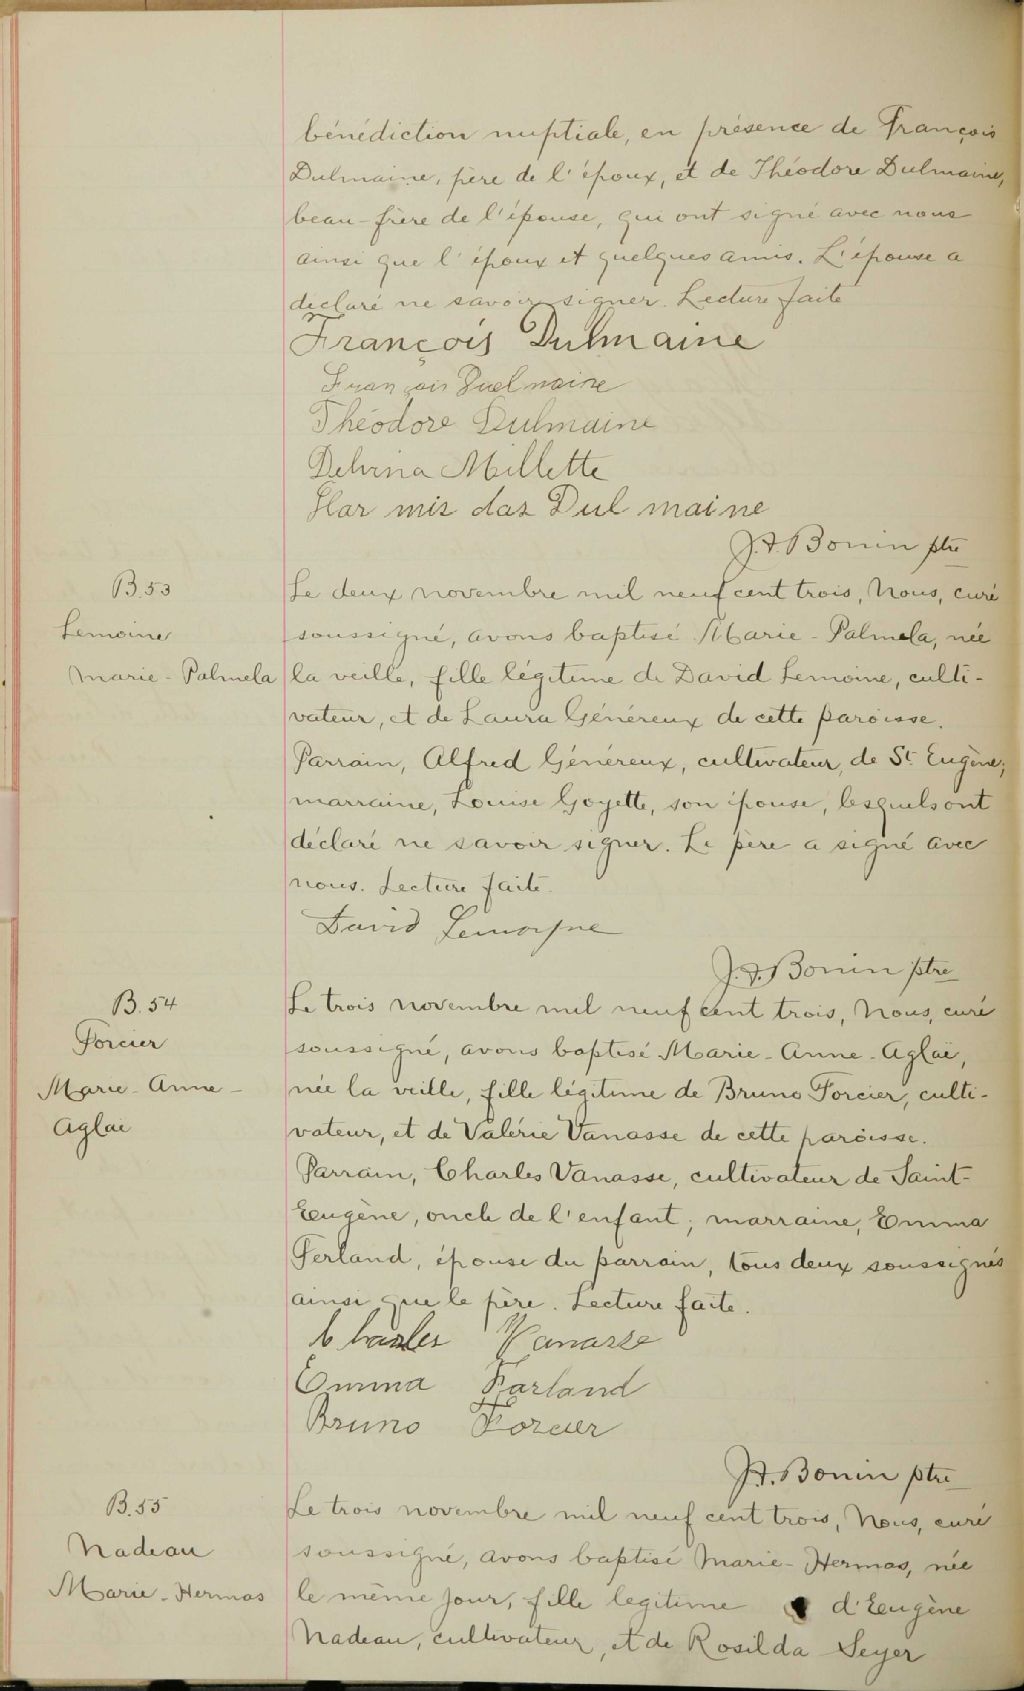 bénédiction nuptiale, en présence de François
Dulmaine, père de l'époux, et de Théodore Dulmaine,
beau-frère de l'épouse, qui ont signé avec nous
ainsi que l'époux et quelques amis. L'épouse a
déclaré ne savoir signer. Lecture faite
François Dulmaine
François Duelmaine
Théodore Dulmaine
Delvina Millette
Har mis das Dul maine
J.A. Bonin ptre
B.53
Lemoine
Marie-Palmela
Le deux novembre mil neuf cent trois, Nous, curé
soussigné, avons baptisé Marie-Palmela, née
la veille, fille légitime de David Lemoine, culti-
vateur, et de Laura Généreux de cette paroisse.
Parrain, Alfred Généreux, cultivateur, de St Eugène;
marraine, Louise Goyette, son épouse, lesquels ont
déclaré ne savoir signer. Le père a signé avec
nous. Lecture faite.
David Lemoyne
J.A. Bonin ptre
B.54
Forcier
Marie-Anne-
Aglaé
Le trois novembre mil neuf cent trois, Nous, curé
soussigné, avons baptisé Marie-Anne-Aglaé,
née la veille, fille légitime de Bruno Forcier, culti-
vateur, et de Valérie Vanasse de cette paroisse.
Parrain, Charles Vanasse, cultivateur de Saint-
Eugène, oncle de l'enfant; marraine, Emma
Ferland, épouse du parrain, tous deux soussignés
ainsi que le père. Lecture faite.
Charles Vanasse
Emma Farland
Bruno Forcier
J.A. Bonin ptre
B.55
Nadeau
Marie-Hermas
Le trois novembre mil neuf cent trois, Nous, curé
soussigné, avons baptisé Marie-Hermas, née
le même jour, fille légitime d'Eugène
Nadeau, cultivateur, et de Rosilda Seyer